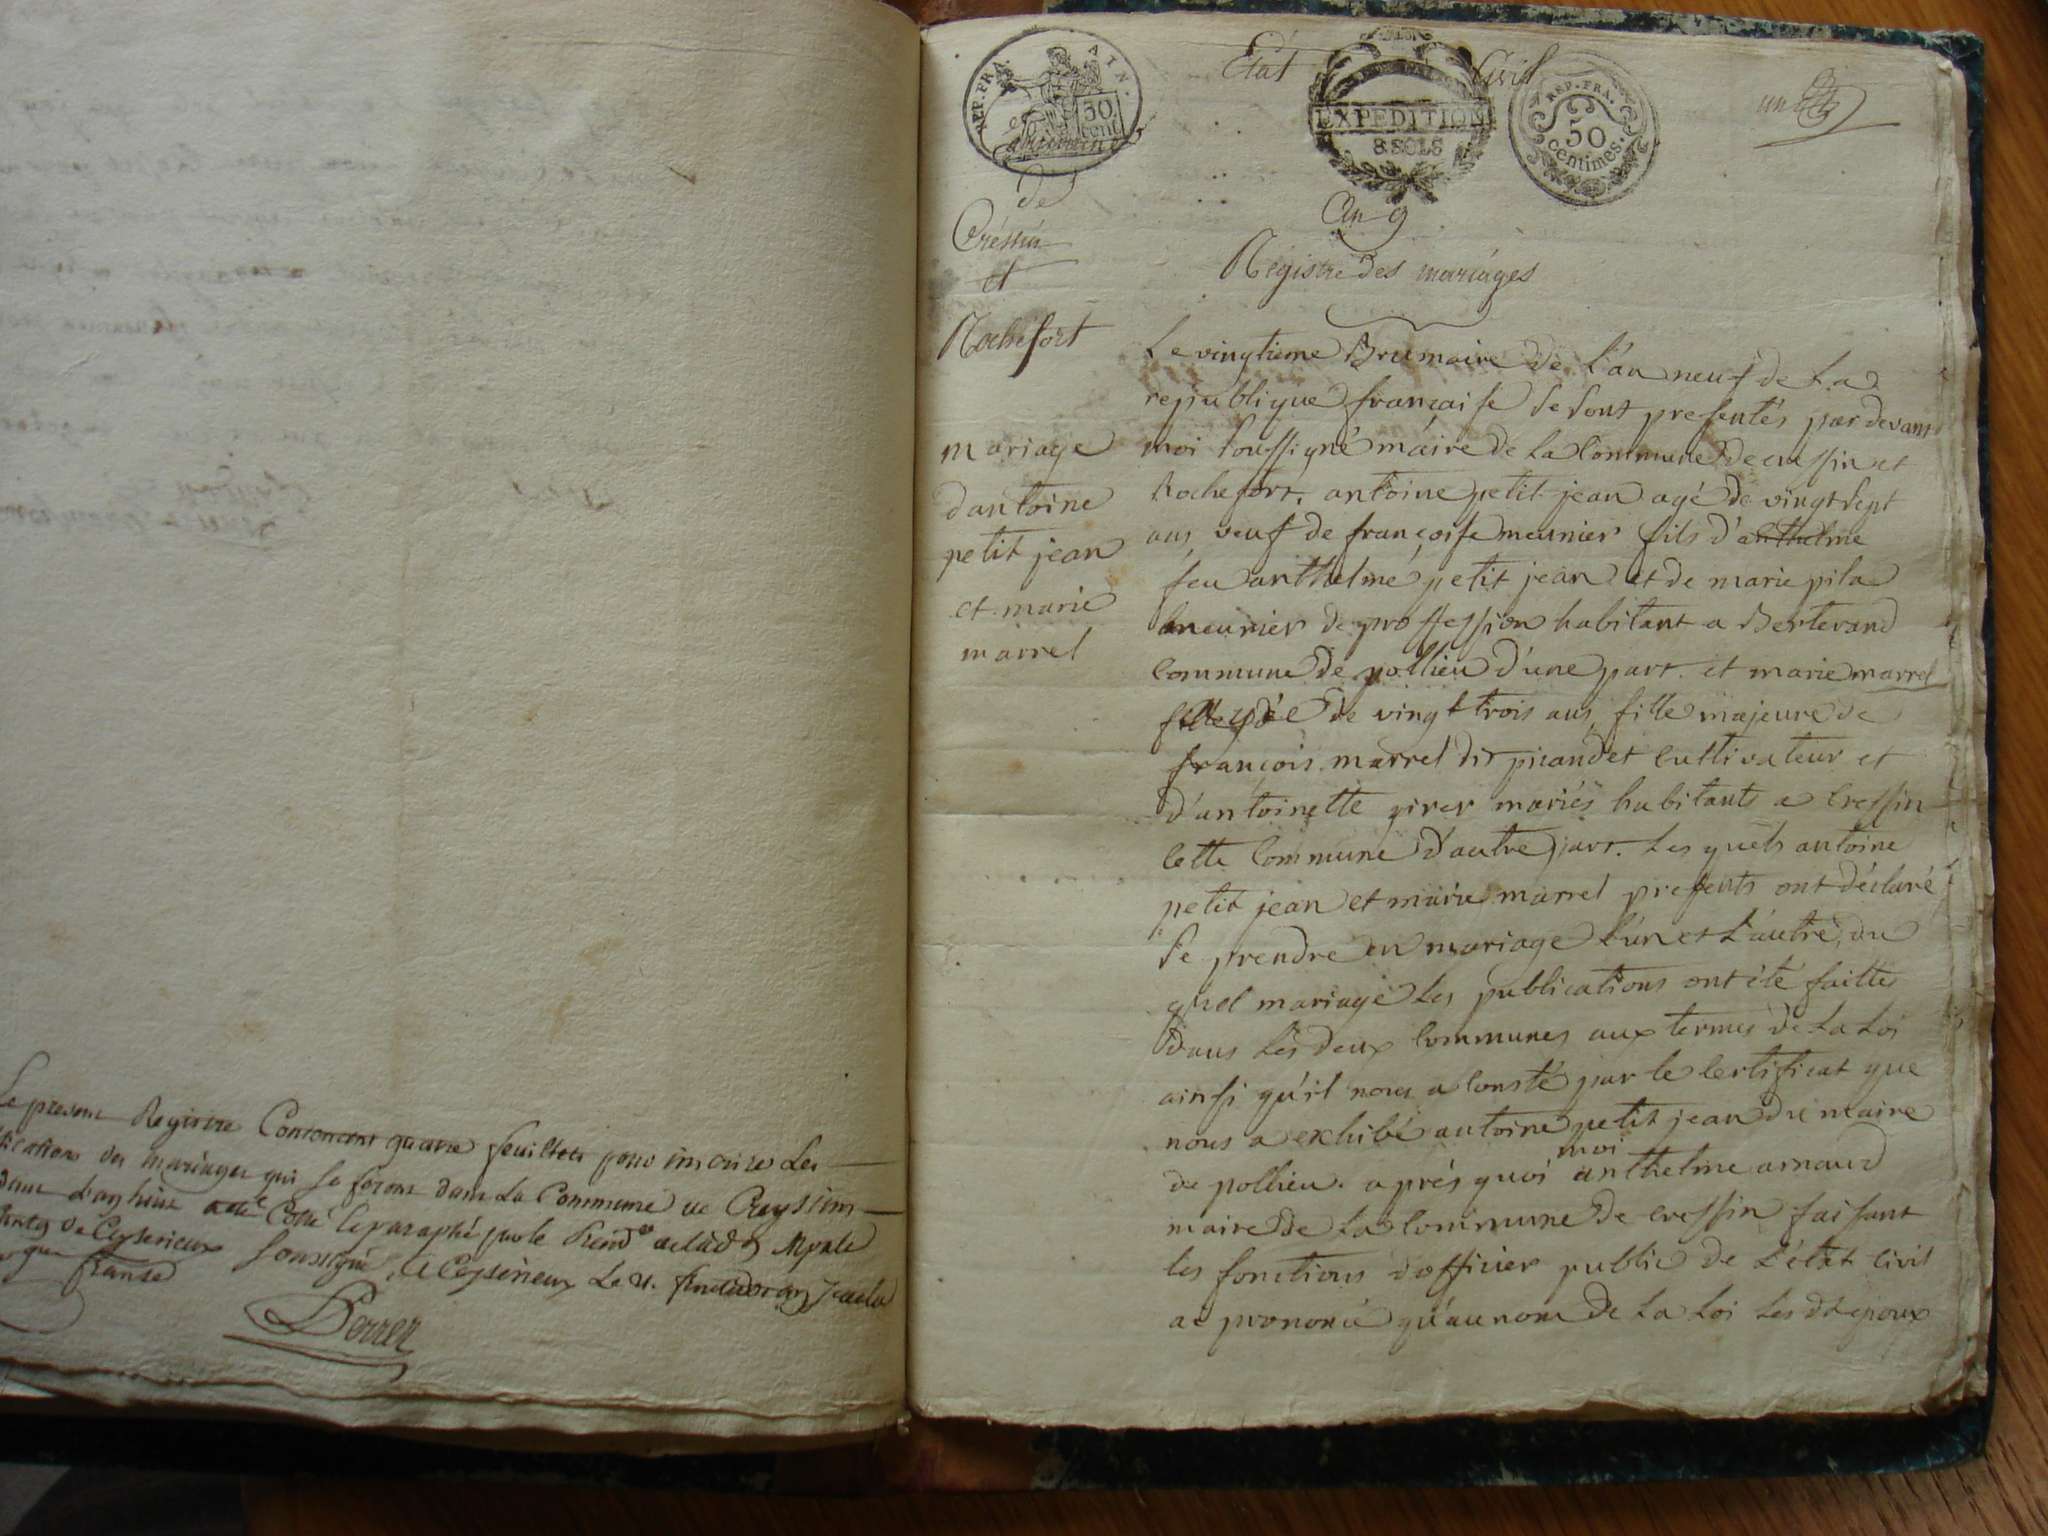 Le present Registre Contenant quatre feuillets pour inscrire Les
des mariages qui se feront dans La Commune de Cressin
dans Coté et paraphé par le Pend.t
de Ceyserieux Soussigné, a Ceyserieux Le
française
Perret
REP. FRA. AIN.
50 cent
Etat Civil
EXPEDITION
8 SOLS
REP. FRA.
50
centimes.
un
de
Créssin
et
Rochefort
An 9
Régistre des mariages
mariage
d'antoine
petit jean
et marie
marrel
Le vingtieme Brumaire de L'an neuf de La
republique française se sont presentés par devant
moi soussigné maire de La Commune de cressin et
Rochefort. antoine petit jean agé de vingt sept
ans, veuf de françoise meunier fils d'anthelme
feu anthelme petit jean et de marie pila
meunier de proffession habitant a Berterand
Commune de pollieu d'une part. et marie marrel
de vingt trois ans, fille majeure de
françois marrel dit picandet Cultivateur et
d'antoinette girer mariés habitants a Cressin
Cette Commune d'autre part. Les quels antoine
petit jean et marie marrel presents ont déclaré
se prendre en mariage l'un et L'autre, du
quel mariage Les publications ont été faittes
dans Les deux Communes aux termes de La Loi
ainsi qu'il nous a Consté par le Certificat que
nous a exhibé antoine petit jean du maire
de pollieu. aprés quoi moi anthelme arnaud
maire de La Commune de Cressin faisant
les fonctions d'officier public de L'état Civil
ai prononcé qu'au nom de La Loi Les dt epoux